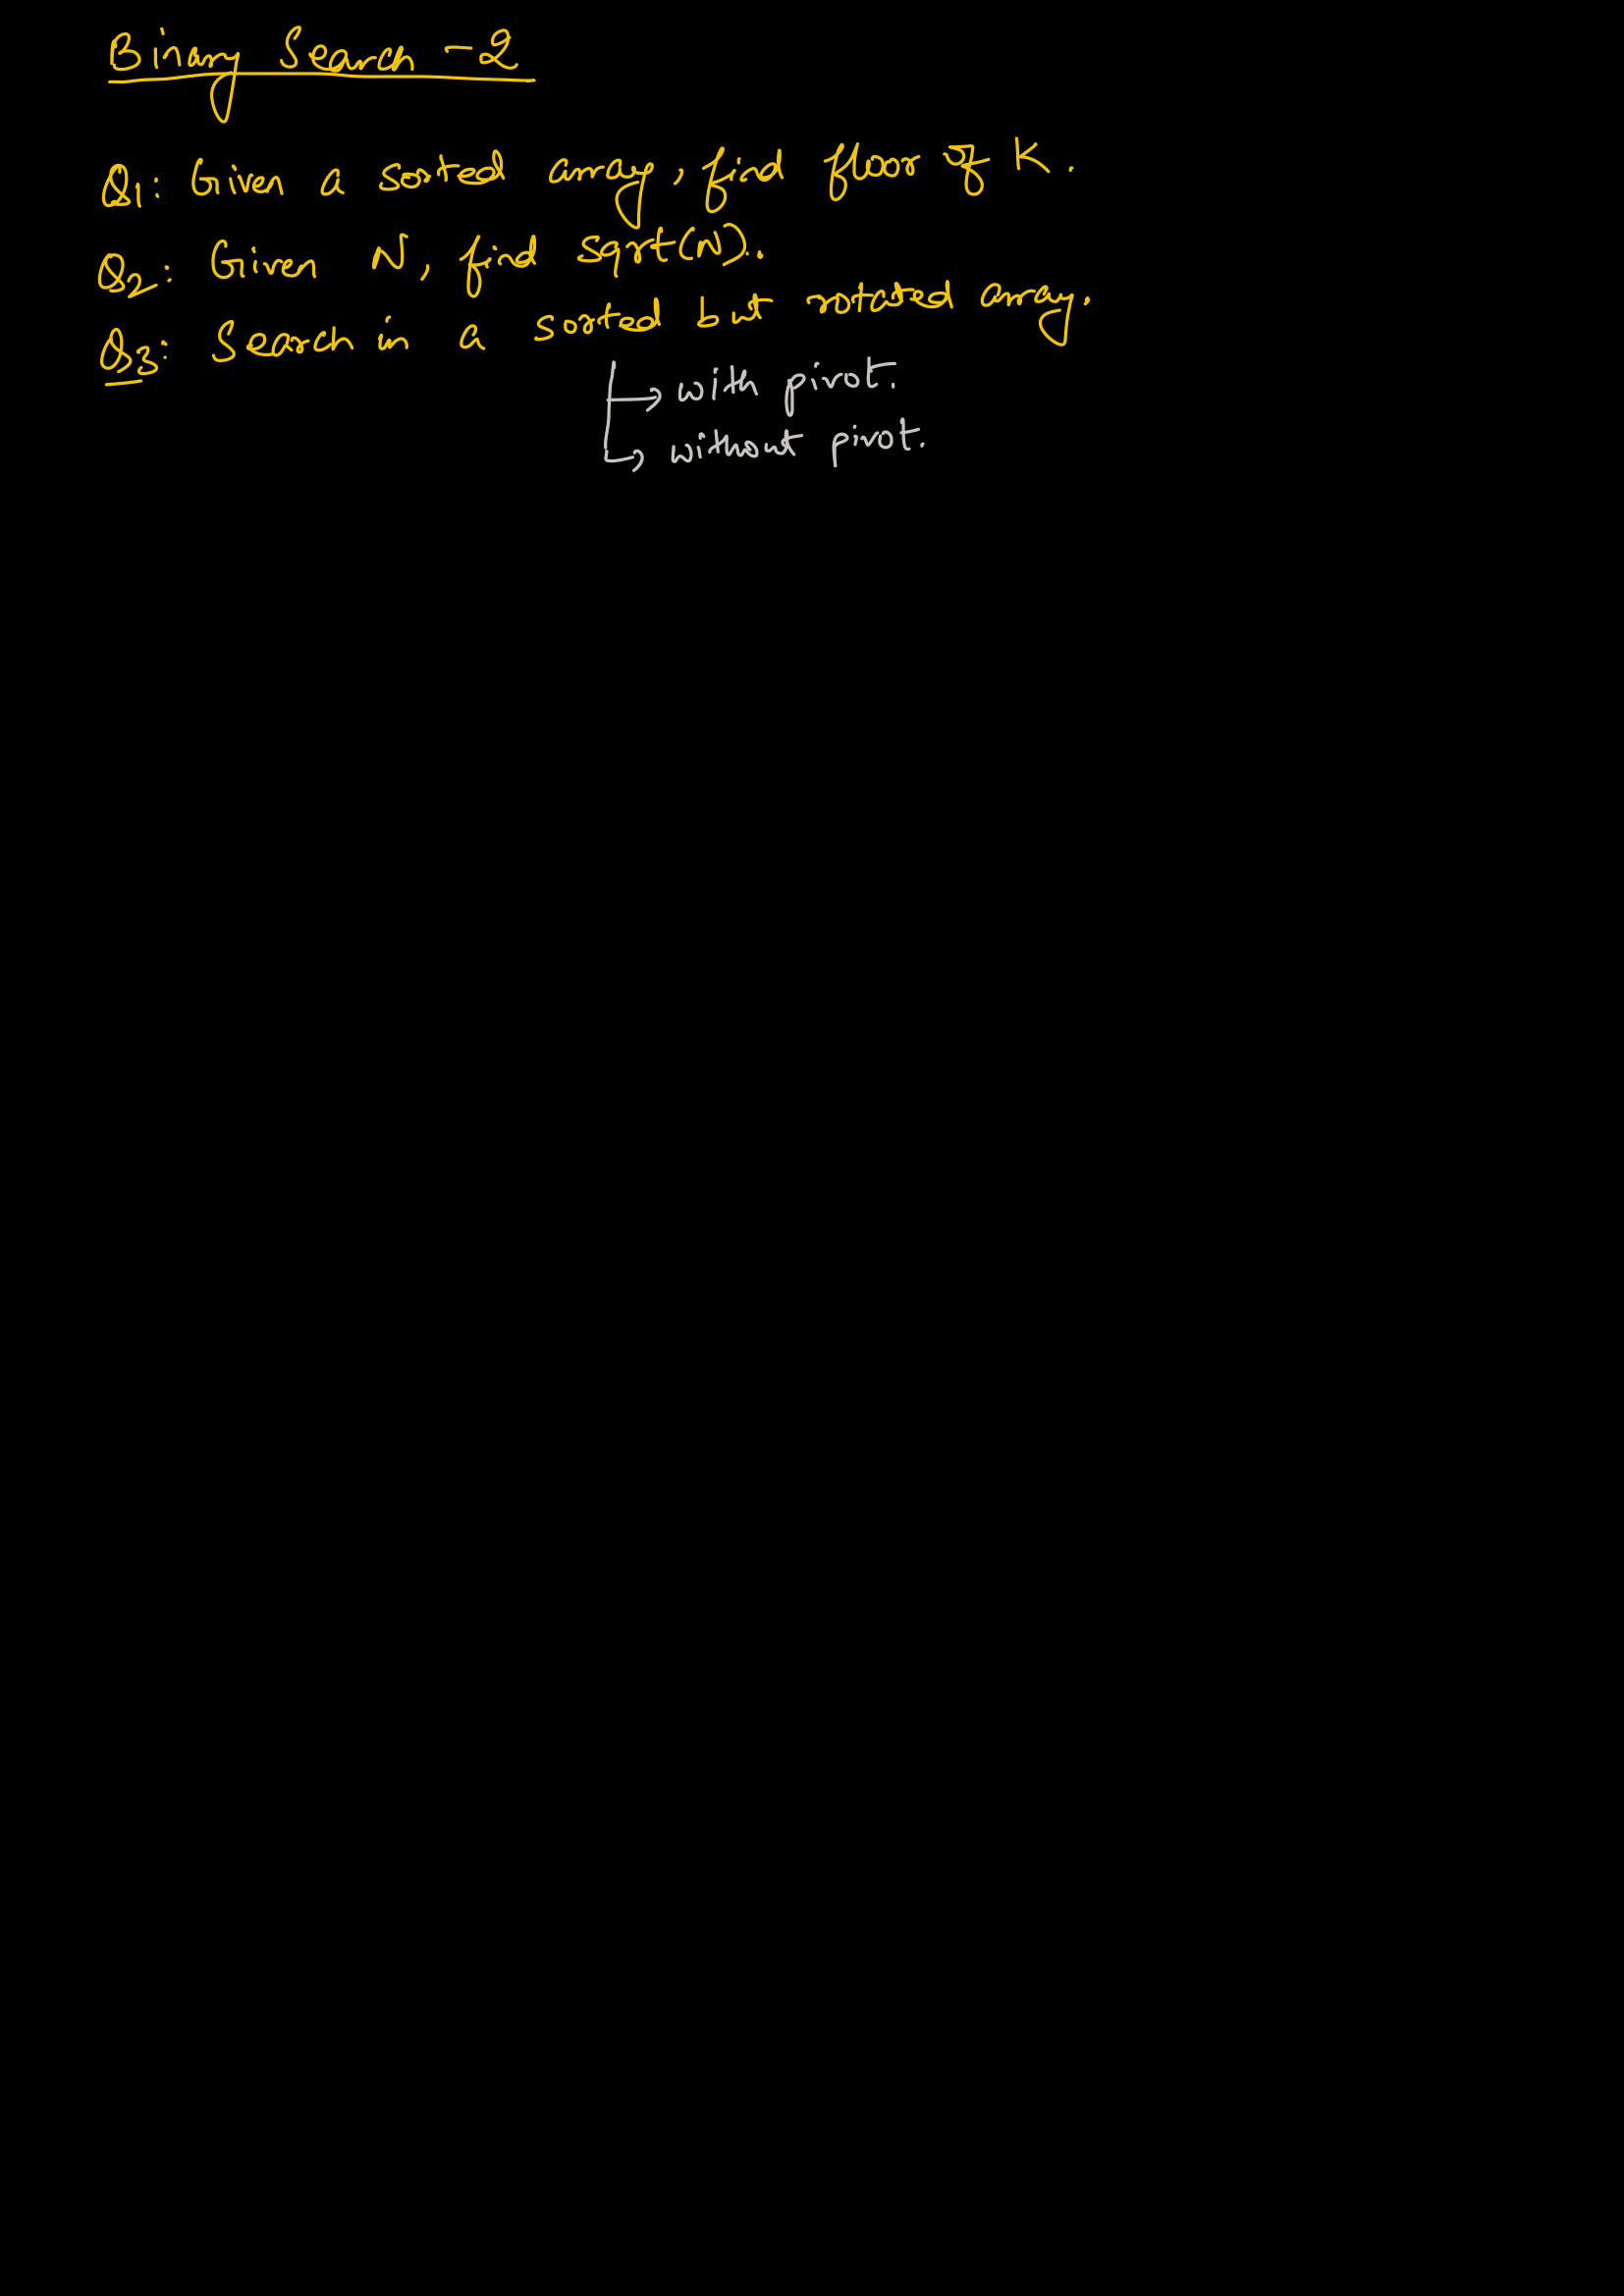 Binary Search -2
Q1: Given a sorted array, find floor of K.
Q2: Given N, find sqrt(N).
Q3: Search in a sorted but rotated array.
→ with pivot.
→ without pivot.